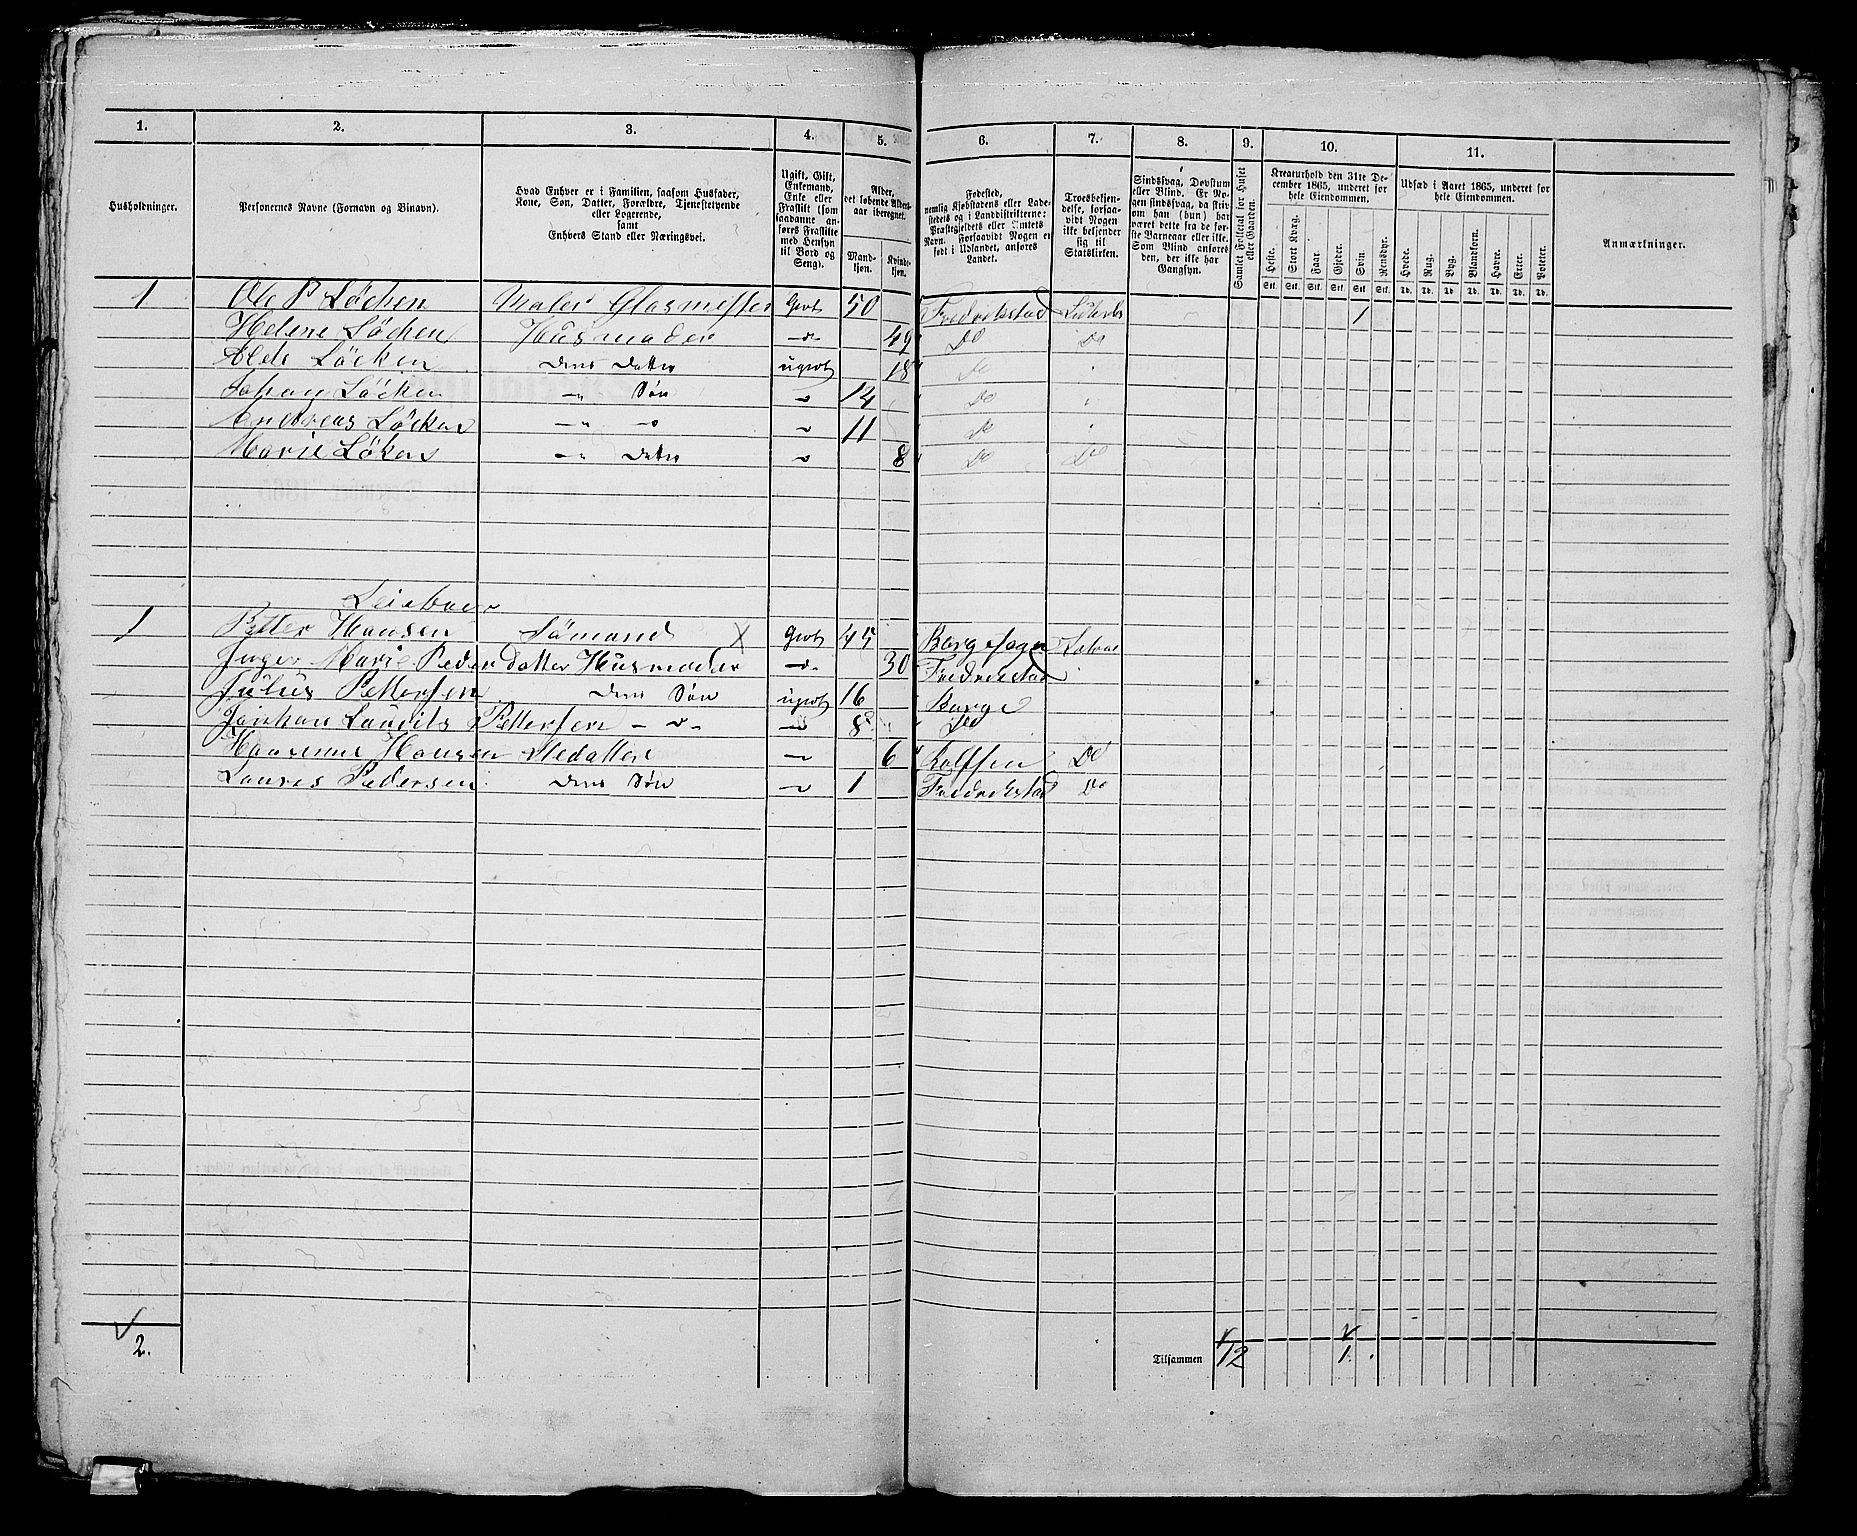 1. 2. 3. 4. 5. 6. 7. 8. 9. 10. 11.
Husholdninger.
Personernes Navne (Fornavn og Binavn).
Hvad Enhver er i Familien, saasom Husfader,
Kone, Søn, Datter, Forældre, Tjenestetyende
eller Logerende,
samt
Enhvers Stand eller Næringsvei.
Ugift, Gift,
Enkemand,
Enke eller
Fraskilt (som
saadanne an-
føres Fraskilte
med Hensyn
til Bord og
Seng).
Alder,
det løbende Alders-
aar iberegnet.
Mand-
kjøn.
Kvinde-
kjøn.
Fødested,
nemlig Kjøbstadens eller Lade-
stedets og i Landdistrikterne:
Præstegjeldets eller Amtets
Navn. Forsaavidt Nogen er
født i Udlandet, anføres
Landet.
Troesbekjen-
delse, forsaa-
vidt Nogen
ikke bekjender
sig til
Statskirken.
Sindssvag, Døvstum
eller Blind. Er No-
gen sindssvag, da skriv
om han (hun) har
været dette fra de før-
ste Barneaar eller ikke.
Som Blind anføres
den, der ikke har
Gangsyn.
Samlet Folketal for Huset
eller Gaarden.
Kreaturhold den 31te De-
cember 1865, underet for
hele Eiendommen.
Heste. Stort Kvæg. Faar. Gjeder. Svin. Rensdyr.
Stk. Stk. Stk. Stk. Stk. Stk.
Udsæd i Aaret 1865, underet for
hele Eiendommen.
Hvede. Rug. Byg. Blandkorn. Havre. Erter. Poteter.
Td. Td. Td. Td. Td. Td. Td.
Anmærkninger.
1 Ole P Löchen Maler Glasmester Givt 50 Fredrikstad 1
Helene Löchen Husmoder -"- 49 Do Do
Löcken Deres Datter ugivt 18 Do
Johan Löcken -"- Sön 14 Do
Andreas Löcken -"- 11 Do
Marie Löken -"- Datter 8 Do Do
1 Petter Hansen Sömand X Givt 45 Borge Sogn
Inger Marie Pedersdatter Husmoder 30 Fredrikstad
Julius Pettersen Deres Sön ugivt 16 Borge
Laurits Pettersen 8 Do
Hansen Stedatter 6 Do
Laures Pedersen Deres Sön 1 Fredrikstad Do
2. Tilsammen 12 1.